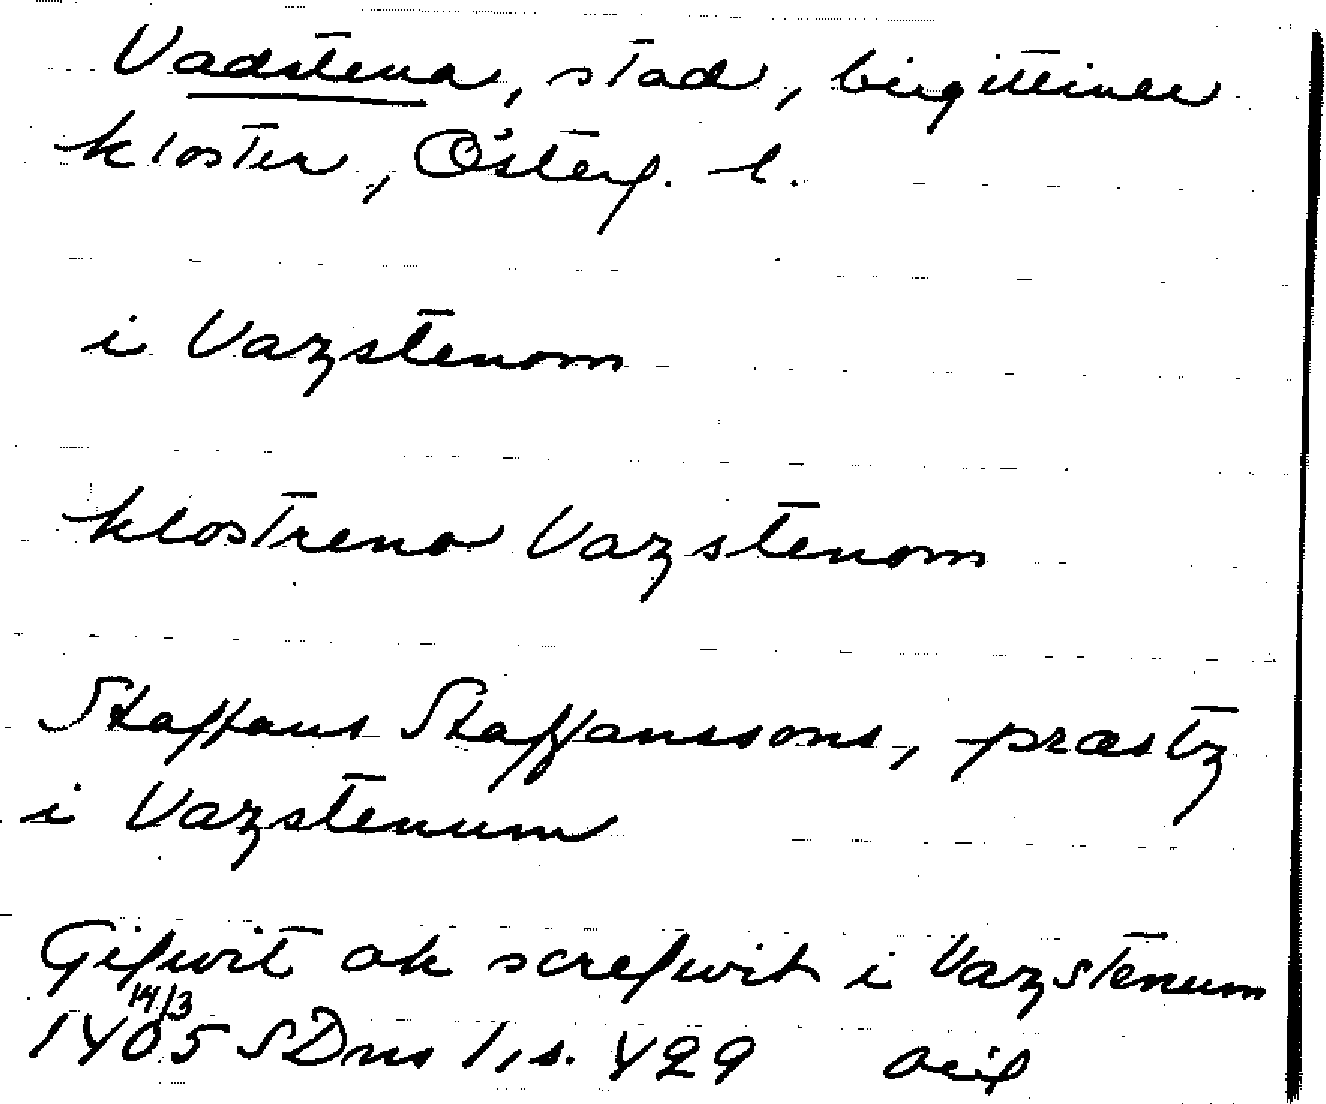 Vadstena, stad, birgittiner
kloster, Österg. l.
i Vazstenom
klostreno Vazstenom
Staffans Staffanssons, præstz
i Vazstenum
Gifwit ok screfwit i Vazstenum
14/3
1405 SDns 1, s. 429 orig